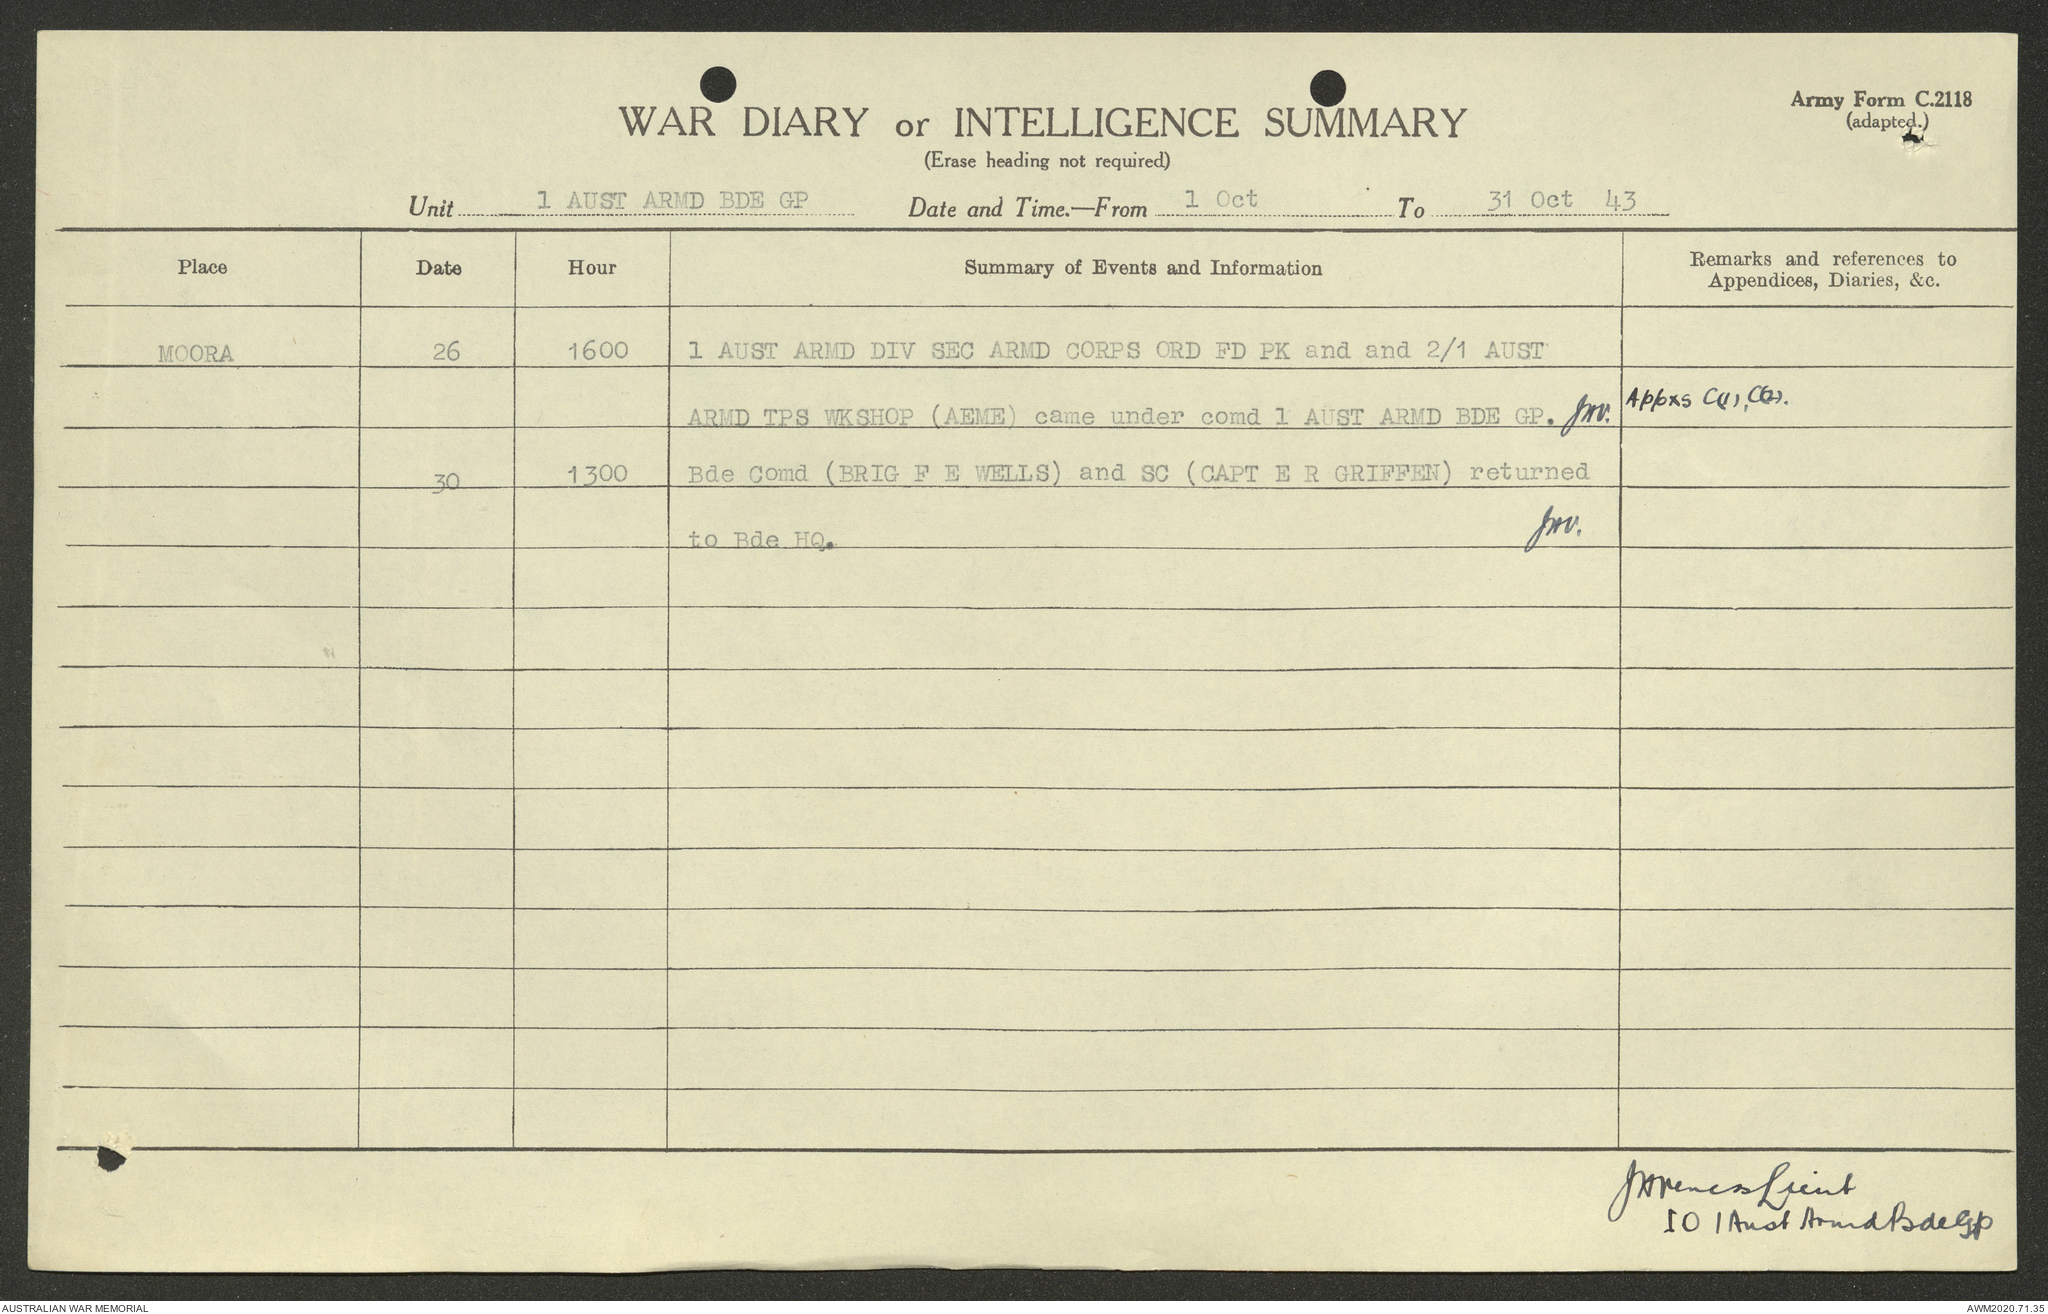 Army Form C.2118
(adapted.)
WAR DIARY or INTELLIGENCE SUMMARY
(Erase heading not required)
Unit 1 AUST ARMD BDE GP Date and Time.—From 1 Oct To 31 Oct 43
Place Date Hour Summary of Events and Information Remarks and references to Appendices, Diaries, &c.
MOORA 26 1600 1 AUST ARMD DIV SEC ARMD CORPS ORD FD PK and and 2/1 AUST
ARMD TPS WKSHOP (AEME) came under comd 1 AUST ARMD BDE GP. JAV. Appxs C(1), C(2).
30 1300 Bde Comd (BRIG F E WELLS) and SC (CAPT E R GRIFFEN) returned
to Bde HQ. JAV.
Lieut
IO 1 Aust Armd Bde Gp
AUSTRALIAN WAR MEMORIAL
AWM2020.71.35